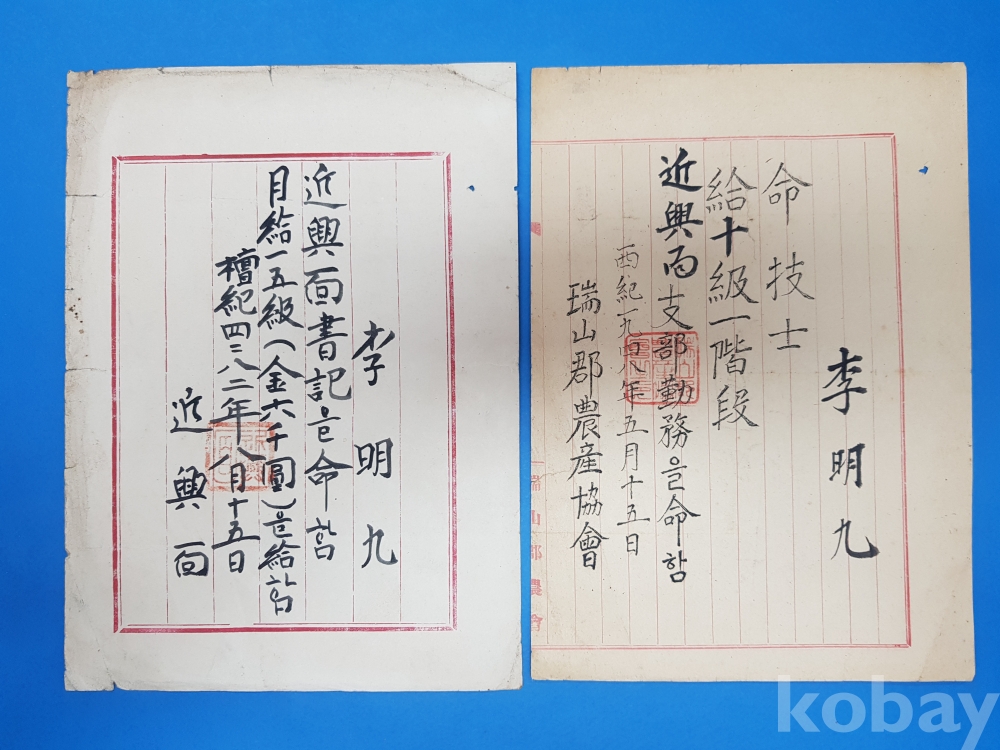 李明九
近興面書記을命함
月給一五級(金六千圓)을給함
檀紀四二八二年八月十五日
近興面
李明九
命技士
給十級一階段
近興面支部勤務을命함
西紀一九四八年五月十五日
瑞山郡農産協會
瑞山郡農會
kobay